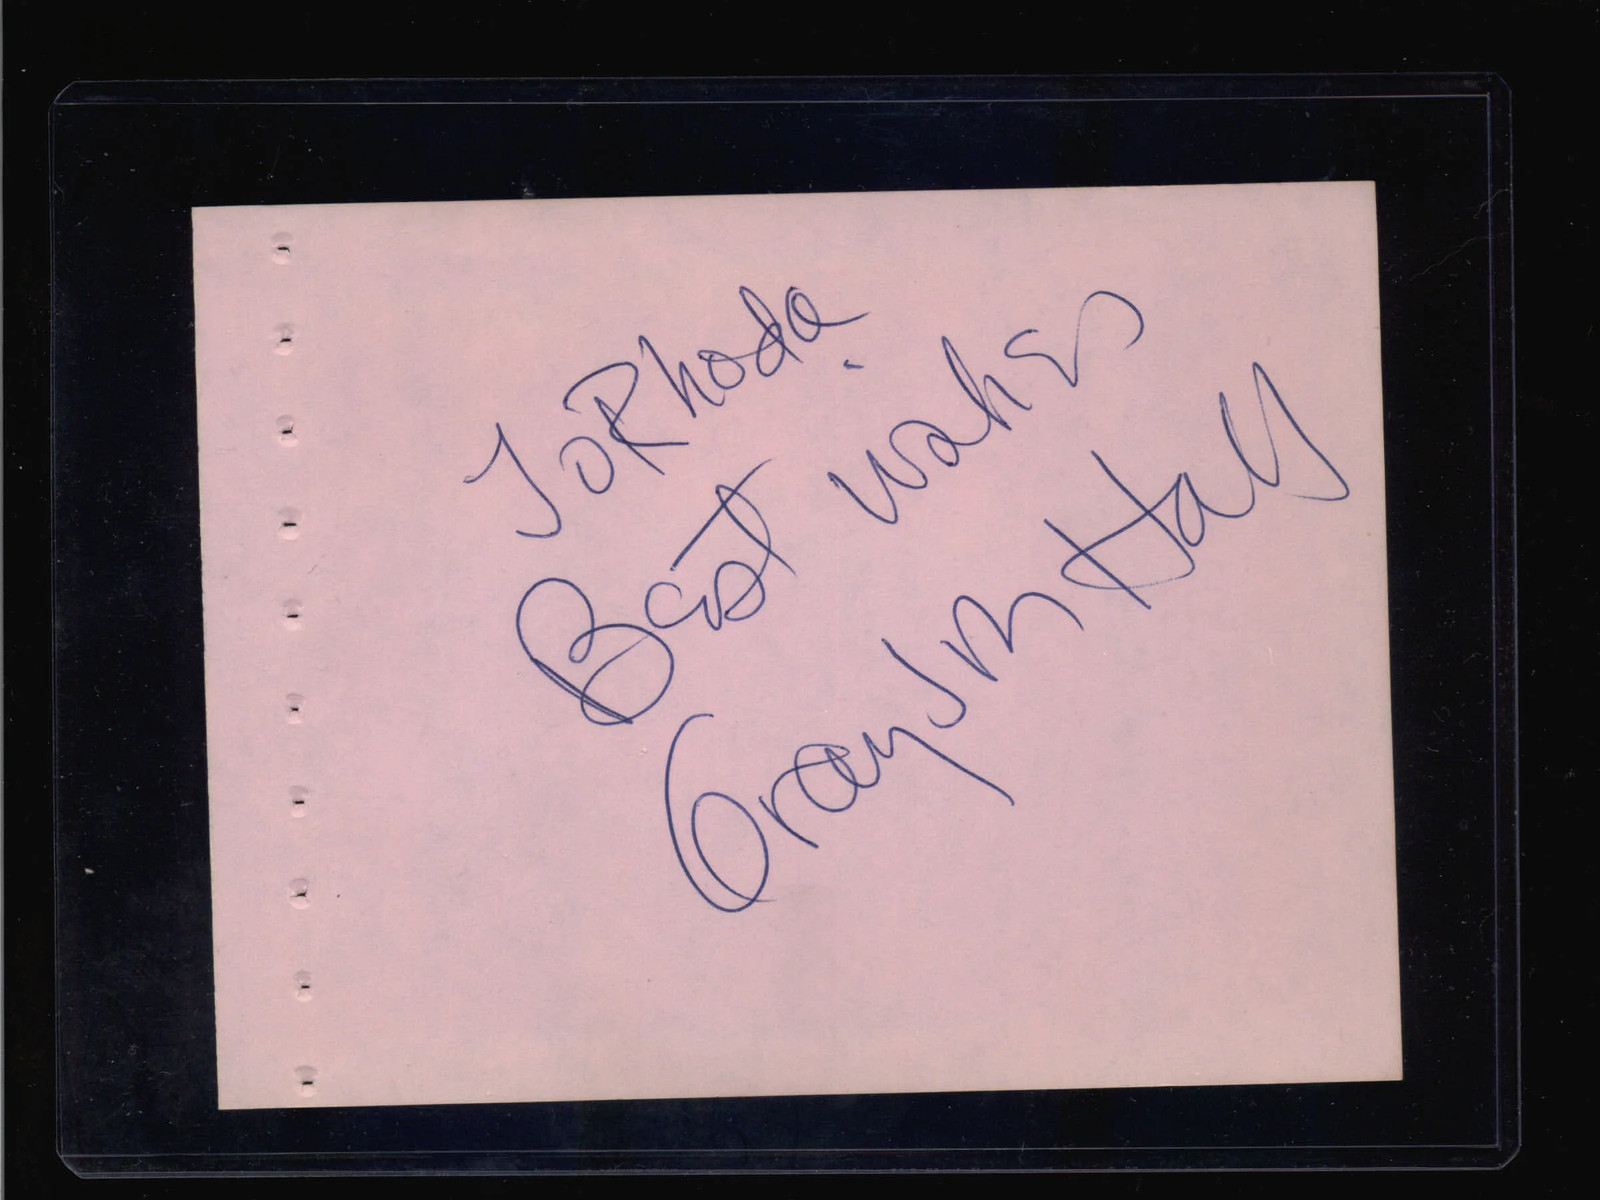 To Rhoda.
Best wishes
Grayson Hall